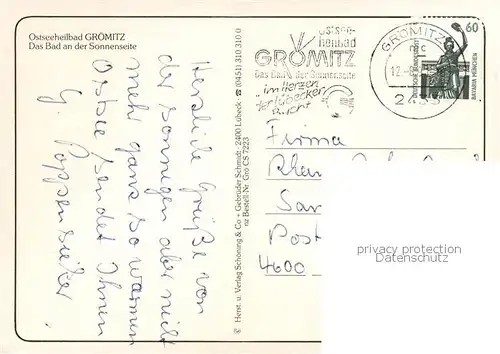 Ostseeheilbad GRÖMITZ
Das Bad an der Sonnenseite
Herzliche Grüße von
der sonnigen aber nicht
mehr ganz so warmen
Ostsee sendet Ihnen
G. Poppensieker
© Herst. u. Verlag Schöning & Co + Gebrüder Schmidt · 2400 Lübeck · (0451) 310 310 0
nz Bestell Nr. Grö CS 7223
Ostsee-
heilbad
GRÖMITZ
Das Bad an der Sonnenseite
"im Herzen
der Lübecker
Bucht
GRÖMITZ
mc
60
DEUTSCHE BUNDESPOST
BAVARIA MÜNCHEN
Firma
San
Post
4600
privacy protection
for addresses